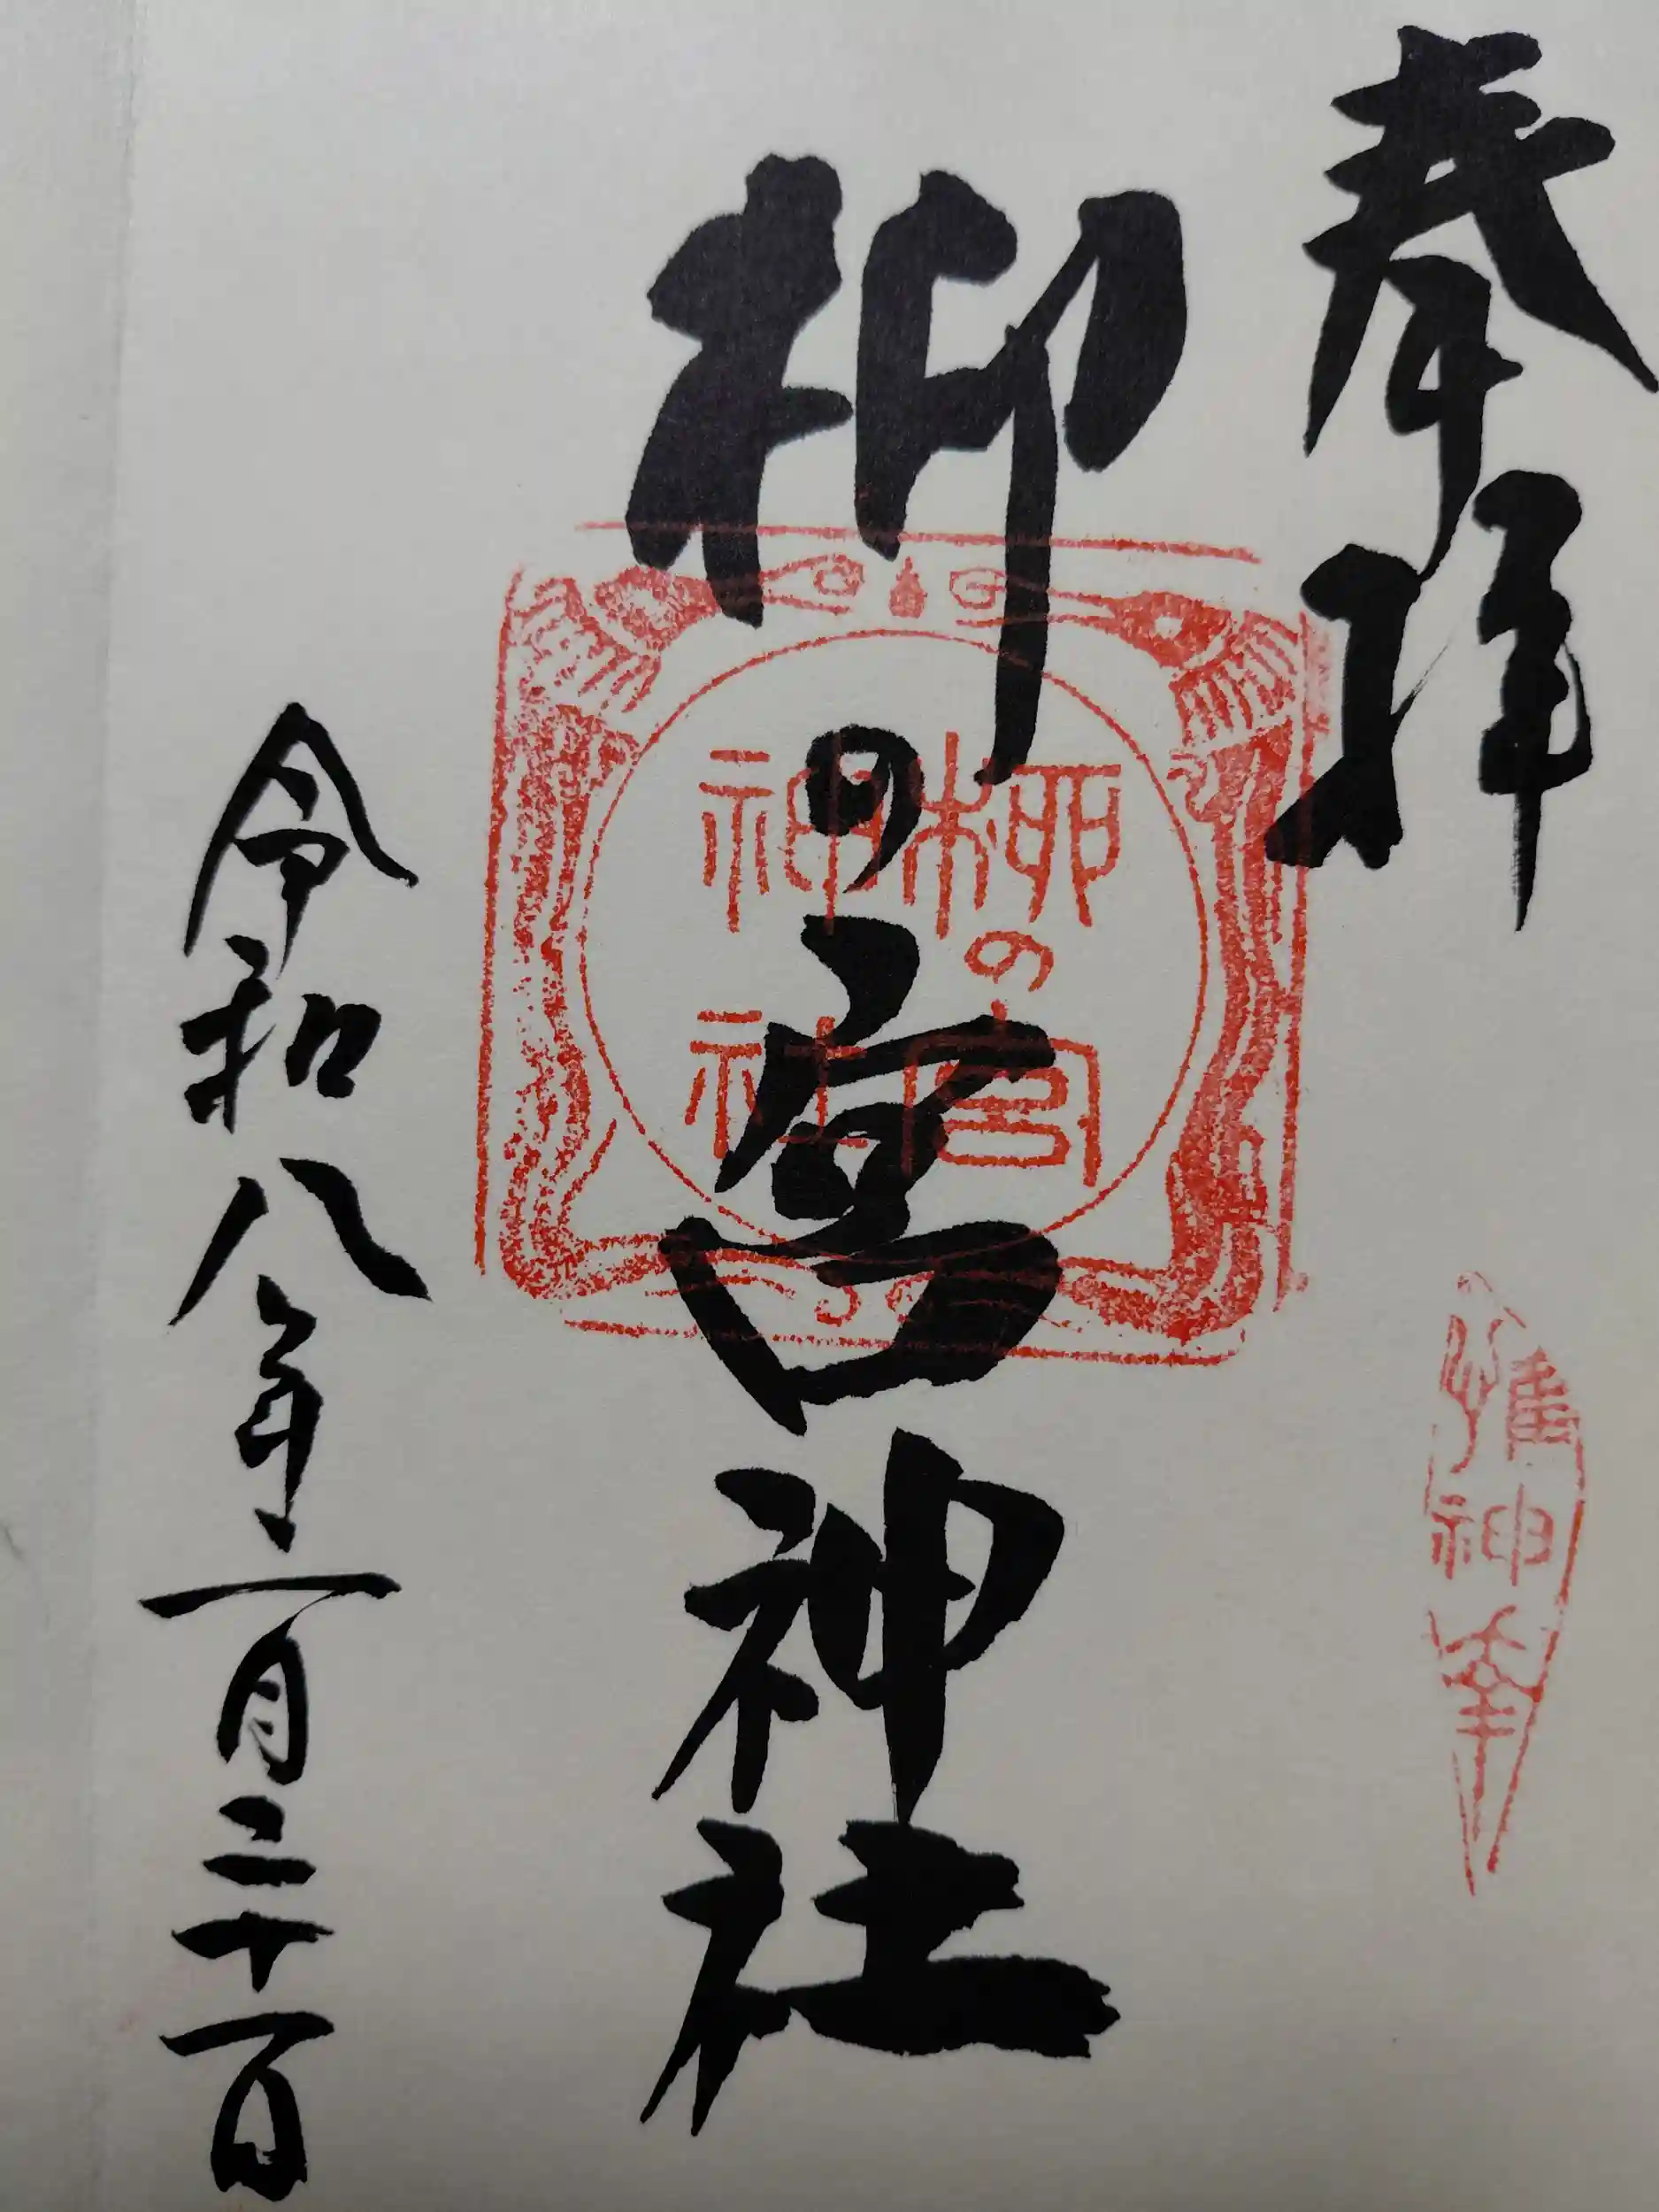 奉拝
惟神幸
柳の宮神社
柳の宮
神社
令和八年一月二十一日